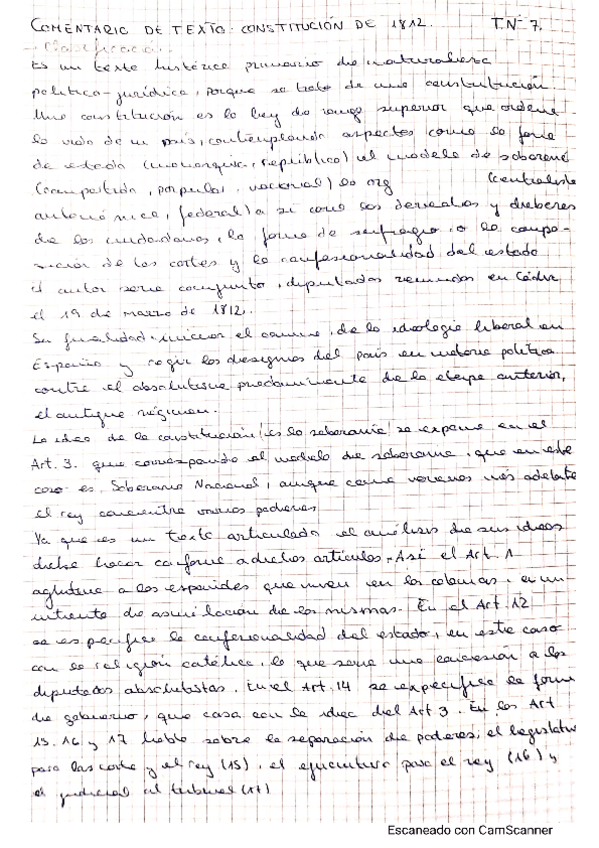 COMENTARIO DE TEXTO: CONSTITUCIÓN DE 1812. T.Nº 7.
- Clasificación.
Es un texto histórico primario de naturaleza
política-jurídica, porque se trata de una constitución
Una constitución es la ley de rango superior que ordena
la vida de un país, contemplando aspectos como la forma
de estado (monarquía, república) el modelo de soberanía
(compartida, popular, nacional) la org (centralista
autonómica, federal) a sí como los derechos y deberes
de los ciudadanos, la forma de sufragio, o la compo-
sición de las cortes y la confesionalidad del estado
El autor sería conjunto, diputados reunidos en Cádiz
el 19 de marzo de 1812.
Su finalidad: iniciar el camino, de la ideología liberal en
España y regir los designios del país en materia política
contra el absolutismo predominante de la etapa anterior,
el antiguo régimen.
La idea de la constitución (es la soberanía) se expone en el
Art. 3. que corresponde al modelo de soberanía, que en este
caso es, Soberanía Nacional, aunque como veremos más adelante
el rey concentra varios poderes
Ya que es un texto articulado el análisis de sus ideas
debe hacer conforme a dichos artículos. Así el Art. 1
aglutina a los españoles que viven en las colonias, en un
intento de asimilación de las mismas. En el Art. 12
se especifica la confesionalidad del estado, en este caso
con la religión católica, lo que sería una concesión a los
diputados absolutistas. En el Art. 14 se especifica la forma
de gobierno, que casa con la idea del Art 3. En los Art
15, 16 y 17 habla sobre la separación de poderes, el legislativo
para las corte y el rey (15), el ejecutivo para el rey (16) y
el judicial al tribunal (17)
Escaneado con CamScanner